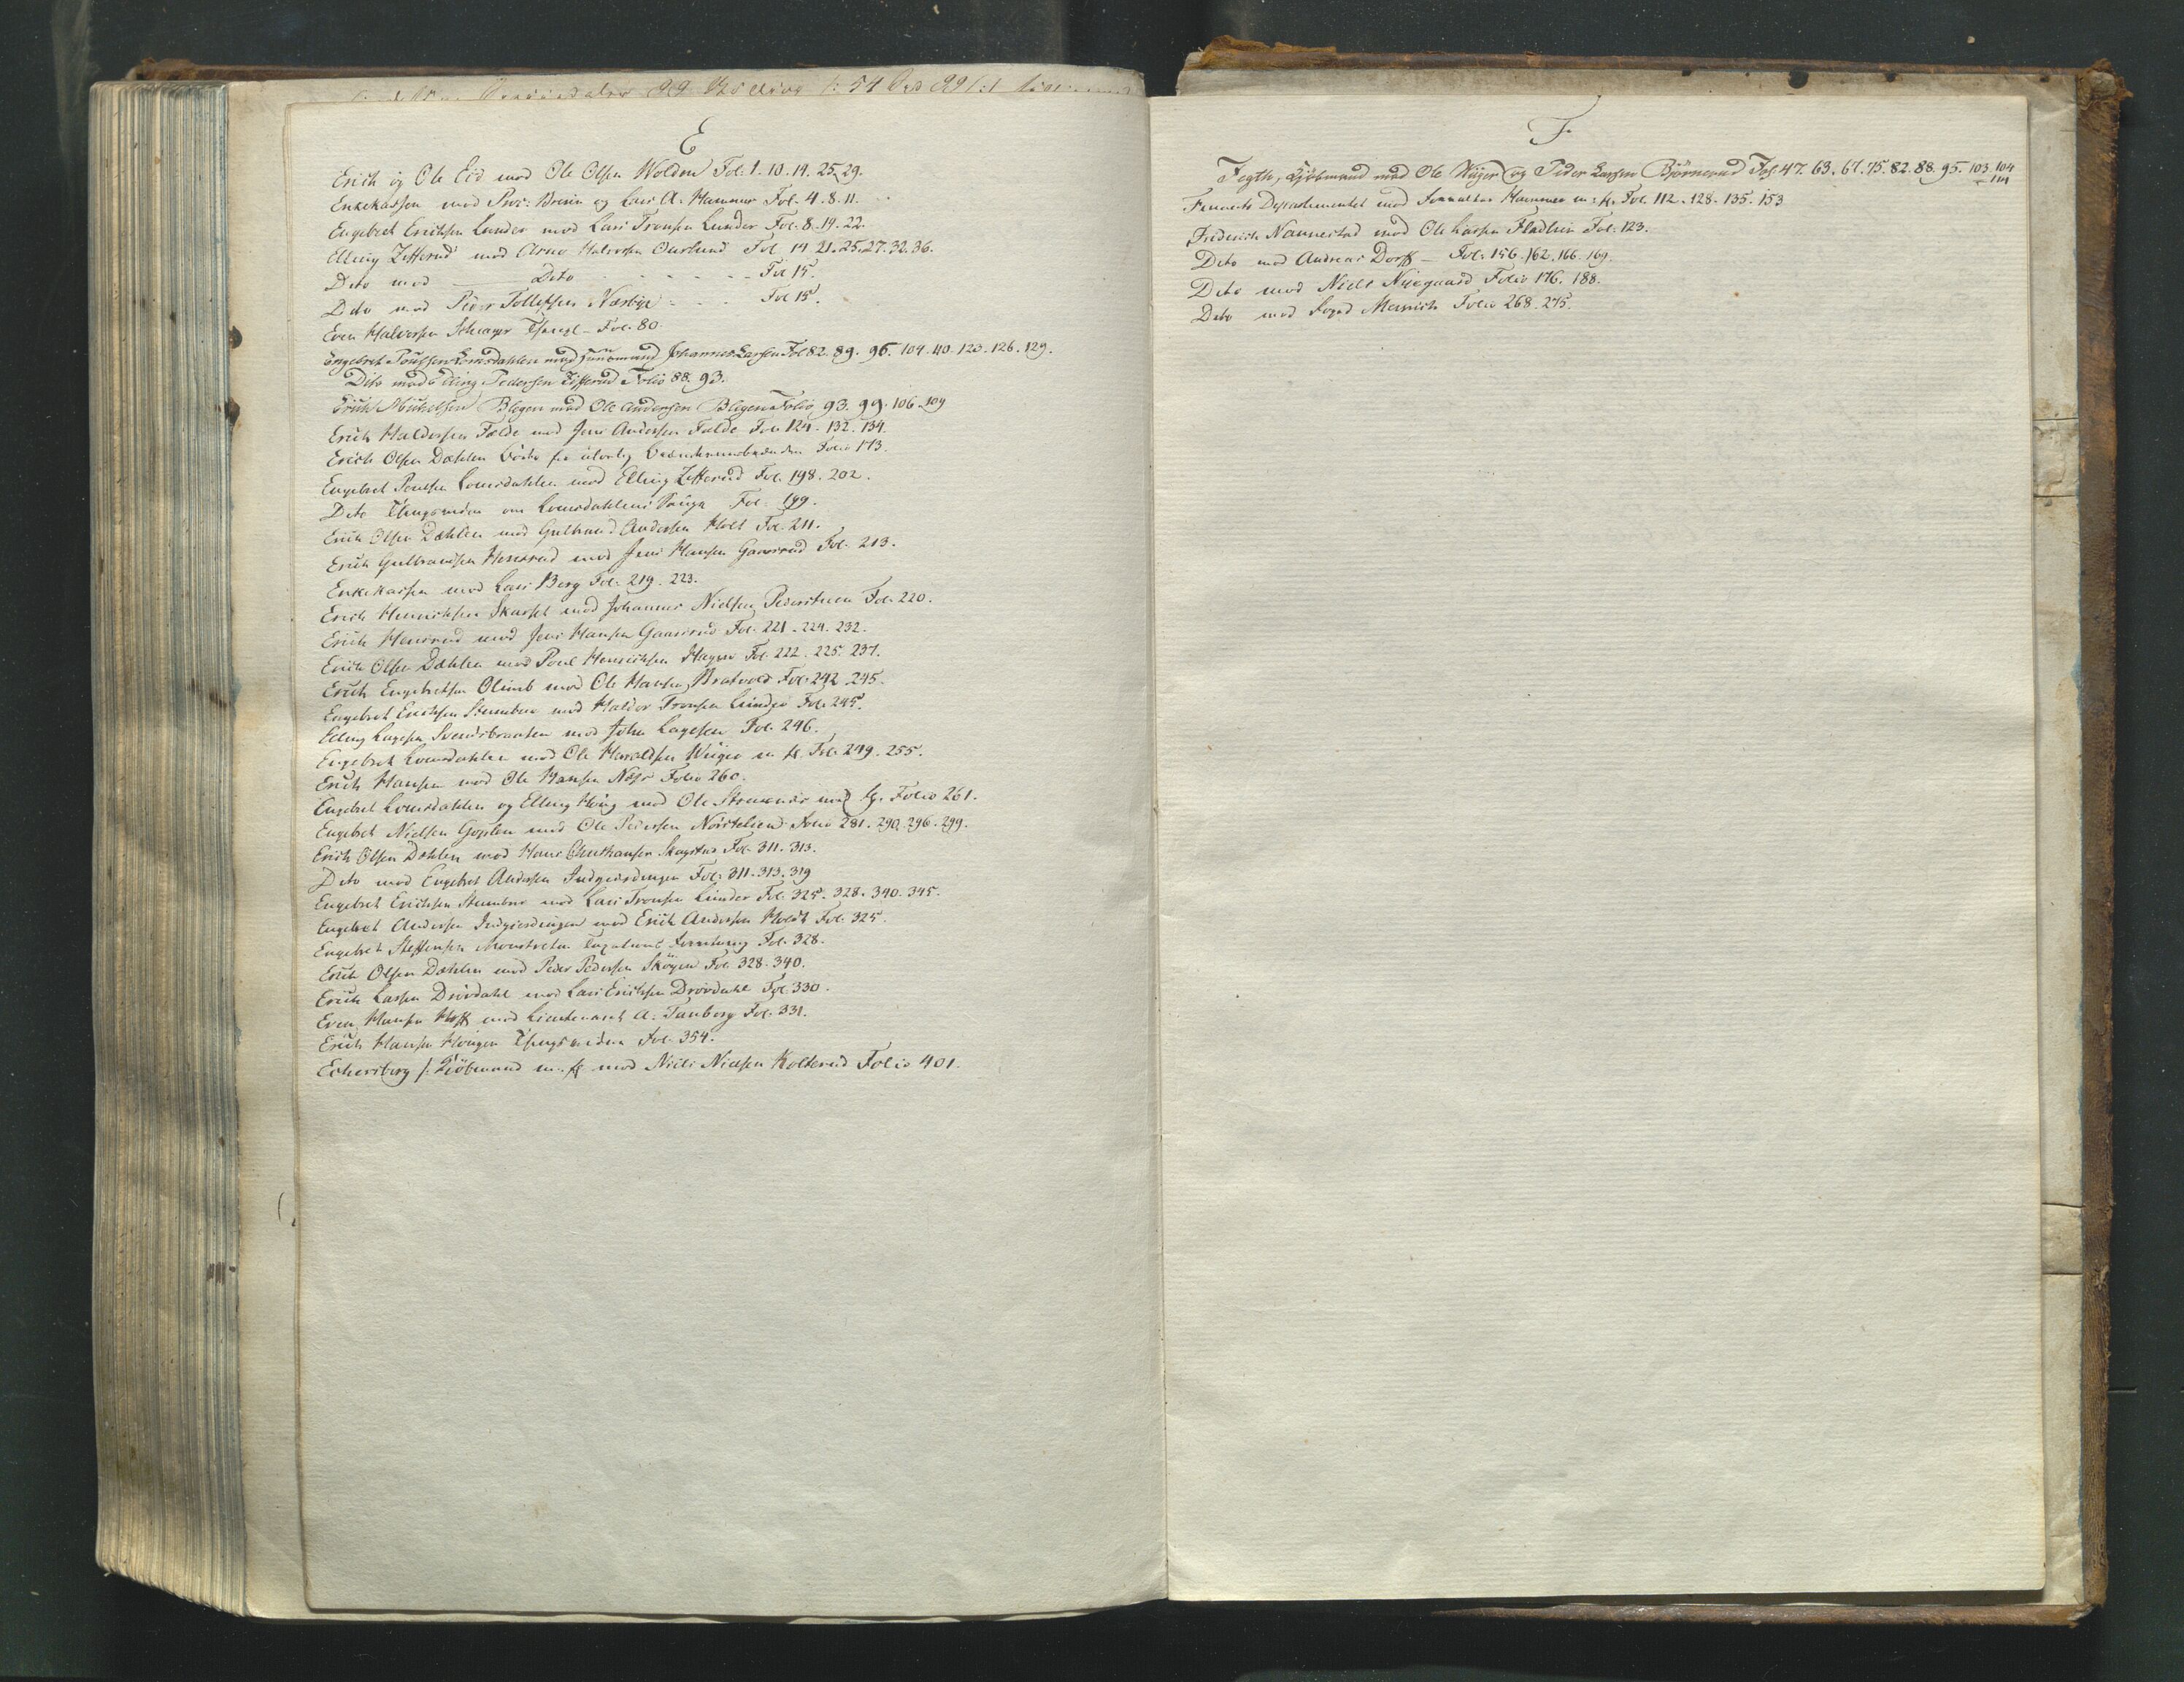 E
Erich og Ole Eid mod Ole Olsen Wolden Fol: 1. 10. 19. 25. 29.
Enkekassen mod Proc: Breien og Lars A. Hammer Fol. 4. 8. 11.
Engebret Erichsen Lunder mod Lars Tronsen Lunder Fol. 8. 19. 22.
Elling Zefferud mod Arne Halvorsen Oarlund Fol 19 21. 25. 27. 32. 36.
Dito mod Dito Fol 15.
Dito mod Peder Tollefsen Næsbye Fol 15.
Even Halvorsen Schrager Fol. 80
Engebret Poulsen Lomsdahlen mod Johannes Larsen Fol 82. 89. 96. 104. 110. 123. 126. 129.
Dito mod Elling Pedersen Zifferud Folio 88. 93.
Erich Michelsen Blegen mod Ole Andersen Blegen Folio 93. 99. 106. 109
Erich Haldorsen Fælde mod Jens Andersen Fælde Fol 124. 132. 134.
Erich Olsen Dæhlen for ulovlig Folio 173.
Engebret Poulsen Lomsdahlen mod Elling Zefferud Fol. 198. 202.
Dito Thingsvidne om Lomsdahlens Fol. 199.
Erich Olsen Dæhlen mod Gulbrand Andersen Holt Fol. 211.
Erich Gulbrandsen Hensrud mod Jens Hansen Gaasrud Fol. 213.
Enkekassen mod Lars Berg Fol. 219. 223.
Erich Henrichsen Skarset mod Johannes Nielsen Pedersteen Fol. 220.
Erich Hensrud mod Jens Hansen Gaasrud Fol. 221. 224. 232.
Erich Olsen Dæhlen mod Poul Henrichsen Hagen Fol. 222. 225. 237.
Erich Engebretsen Olimb mod Ole Hansen Bratvold Fol. 242. 245.
Engebret Erichsen Stumbne mod Haldor Tronsen Lunder Fol. 245.
Elling Lagesen Svendsbraaten mod John Lagesen Fol. 246.
Engebret Lomsdahlen mod Ole Haraldsen Wiiger m. fl. Fol. 249. 255.
Erich Hansen mod Ole Hansen Næss Folio 260.
Engebret Lomsdahlen og Elling Hong mod Ole med fl. Folio 261.
Engebret Nielsen Goplen mod Ole Pedersen Folio 281. 290. 296. 299.
Erich Olsen Dæhlen mod Hans Skagstad Fol. 311. 313.
Dito mod Engebret Andersen Indgierdingen Fol: 311. 313. 319
Engebret Erichsen Stumbne mod Lars Tronsen Lunder Fol. 325. 328. 340. 345.
Engebret Andersen Indgierdingen mod Erich Andersen Holdt Fol. 325.
Engebret Steffensen Taxations Forretning Fol. 328.
Erich Olsen Dæhlen mod Peder Pedersen Skøyen Fol. 328. 340.
Erich Larsen Drøvdahl mod Lars Erichsen Drøvdahl Fol. 330.
Even Hansen Hoff mod Lieutenant A. Tanberg Fol. 331.
Erich Hansen Hougen Thingsvidne Fol. 354.
Eckersberg Kiöbmand m. fl mod Niels Nielsen Kolterud Folio 401.
F
Fegth, Kjøbmand mod Ole Wiiger og Peder Larsen Bjørnerud Fol. 47. 63. 67. 75. 82. 88. 95. 103. 104
111
Finants Departementet mod Hammer m: fl. Fol. 112. 128. 135. 153
Friderich Nannestad mod Ole Larsen Fladlien Fol. 123.
Dito mod Andreas Dorff Fol. 156. 162. 166. 169.
Dito mod Niels Nyegaard Folio 176. 188.
Dito mod Foged Meinich Folio 268. 275.